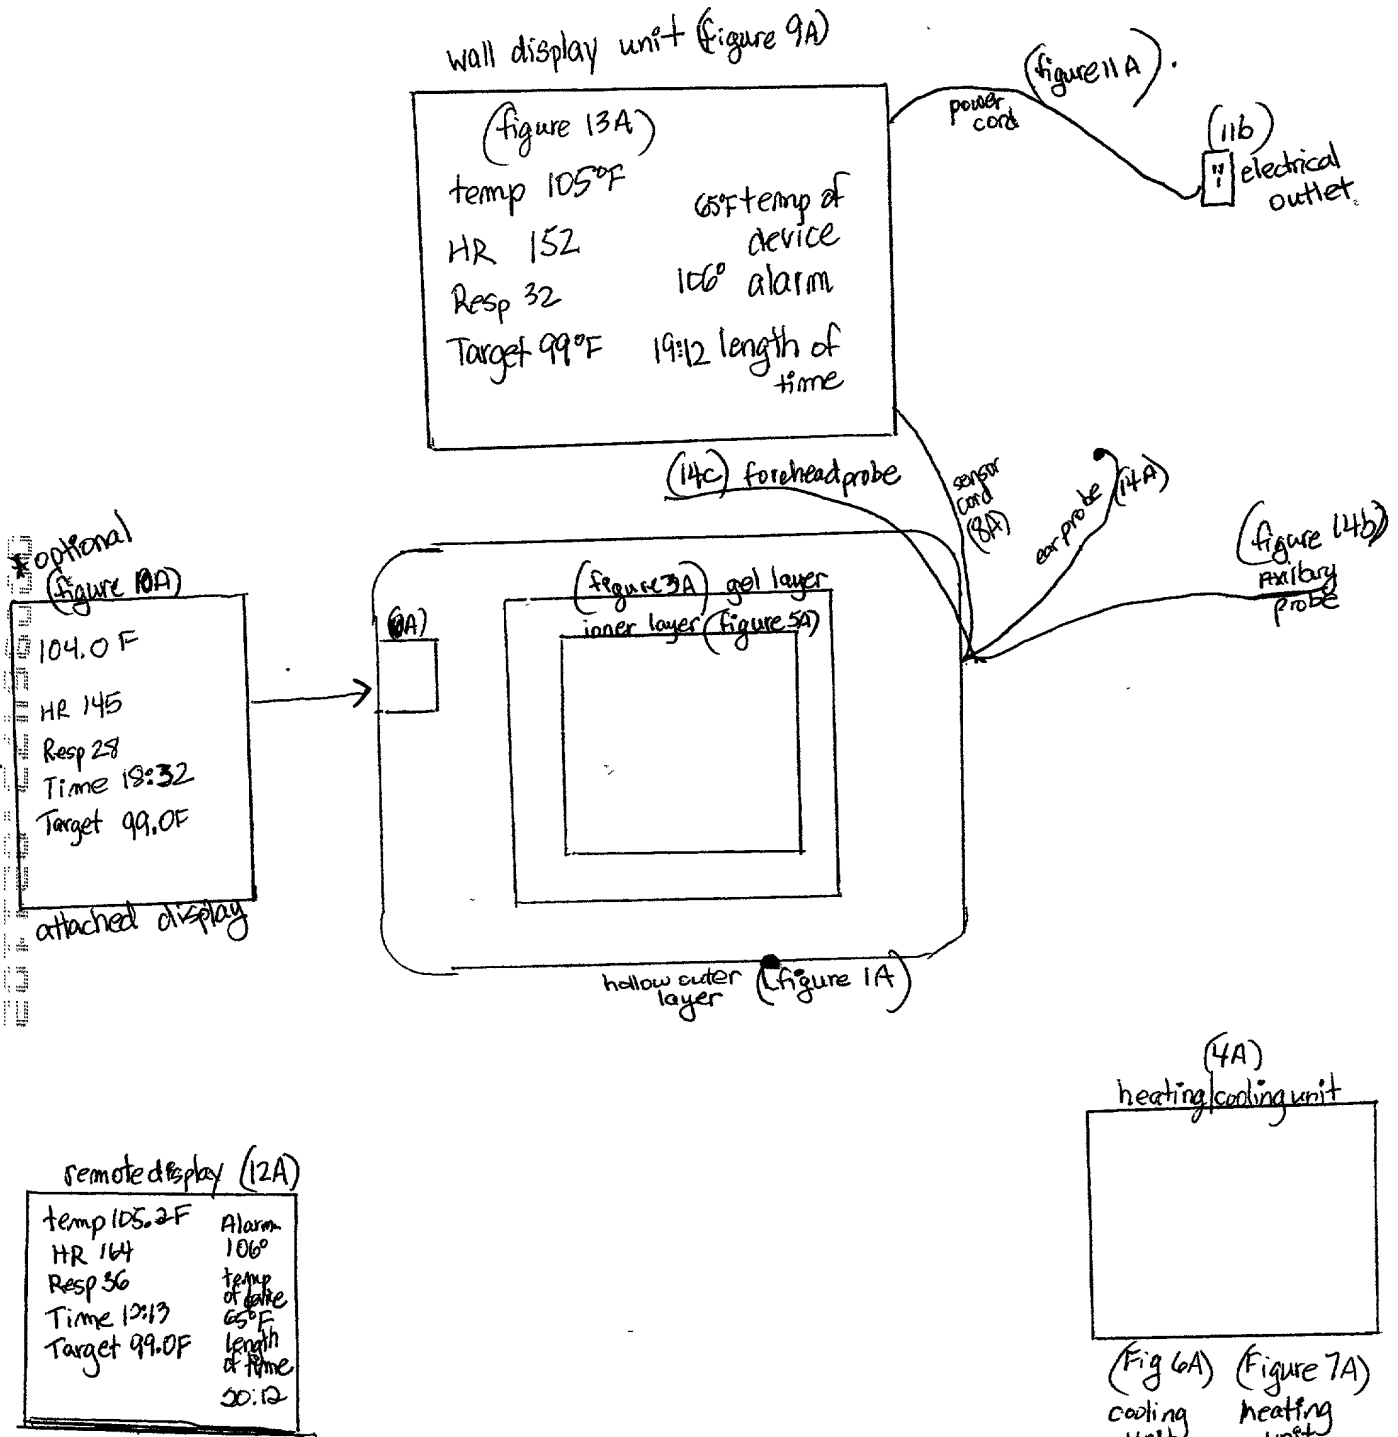 wall display unit (figure 9A)
(figure 11A).
power
cord
(11b)
electrical
outlet.
(figure 13A)
temp 105°F
HR 152
Resp 32
Target 99°F
65°F temp of
device
106° alarm
19:12 length of
time
(14c) foreheadprobe
sensor
cord
(8A)
ear probe
(14A)
(figure 14b)
Axillary
probe
* optional
(figure 10A)
104.0 F
HR 145
Resp 28
Time 18:32
Target 99.0F
attached display
(figure 3A) gel layer
inner layer (figure 5A)
hollow outer
layer
(figure 1A)
(4A)
heating/cooling unit
(Fig 6A)
cooling
unit
(Figure 7A)
heating
unit
remote display (12A)
temp 105.2F
HR 164
Resp 36
Time
Target 99.0F
Alarm
106°
temp
of
65°F
length
of time
20:12